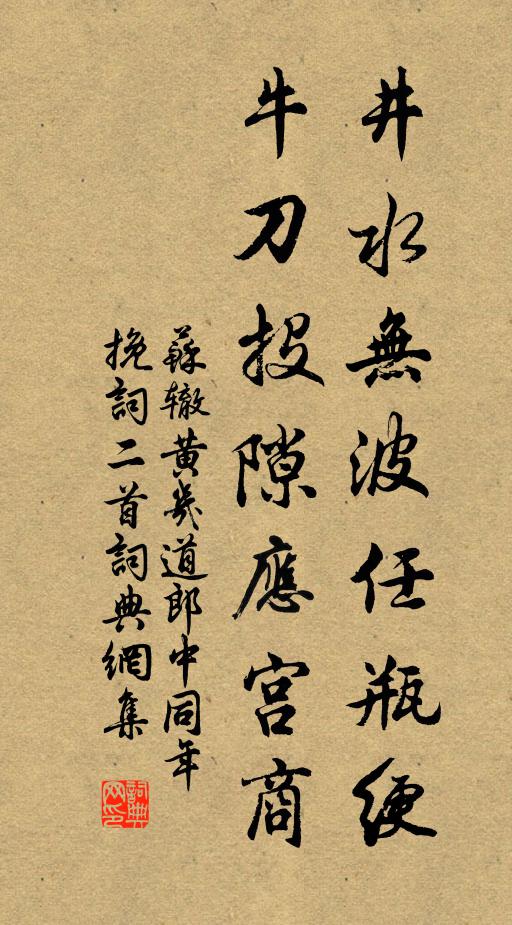 井水無波任瓶綆
牛刀投隙應宮商
蘇辙黄幾道郎中同年
挽詞二首詞典網集
詞典网印